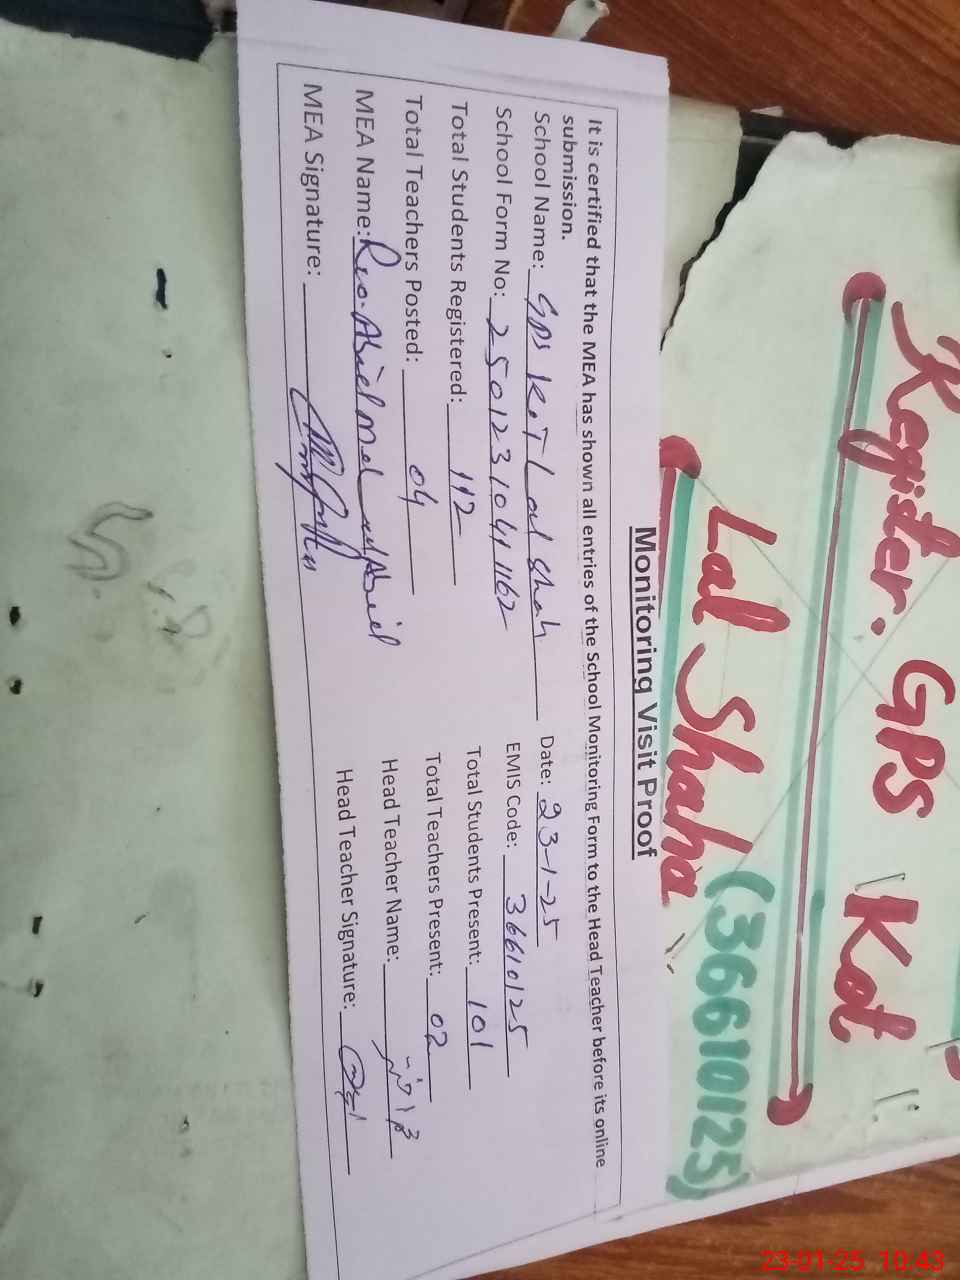 Register. GPS Kot
Lal Shaha (36610125)
Monitoring Visit Proof
It is certified that the MEA has shown all entries of the School Monitoring Form to the Head Teacher before its online
submission.
School Name: GPS Kot Lal Shah Date: 23-1-25
School Form No: 2501231041162 EMIS Code: 36610125
Total Students Registered: 112 Total Students Present: 101
Total Teachers Posted: 04 Total Teachers Present: 02
MEA Name: Rao. Abid Head Teacher Name:
MEA Signature: Head Teacher Signature:
23-01-25 10:43